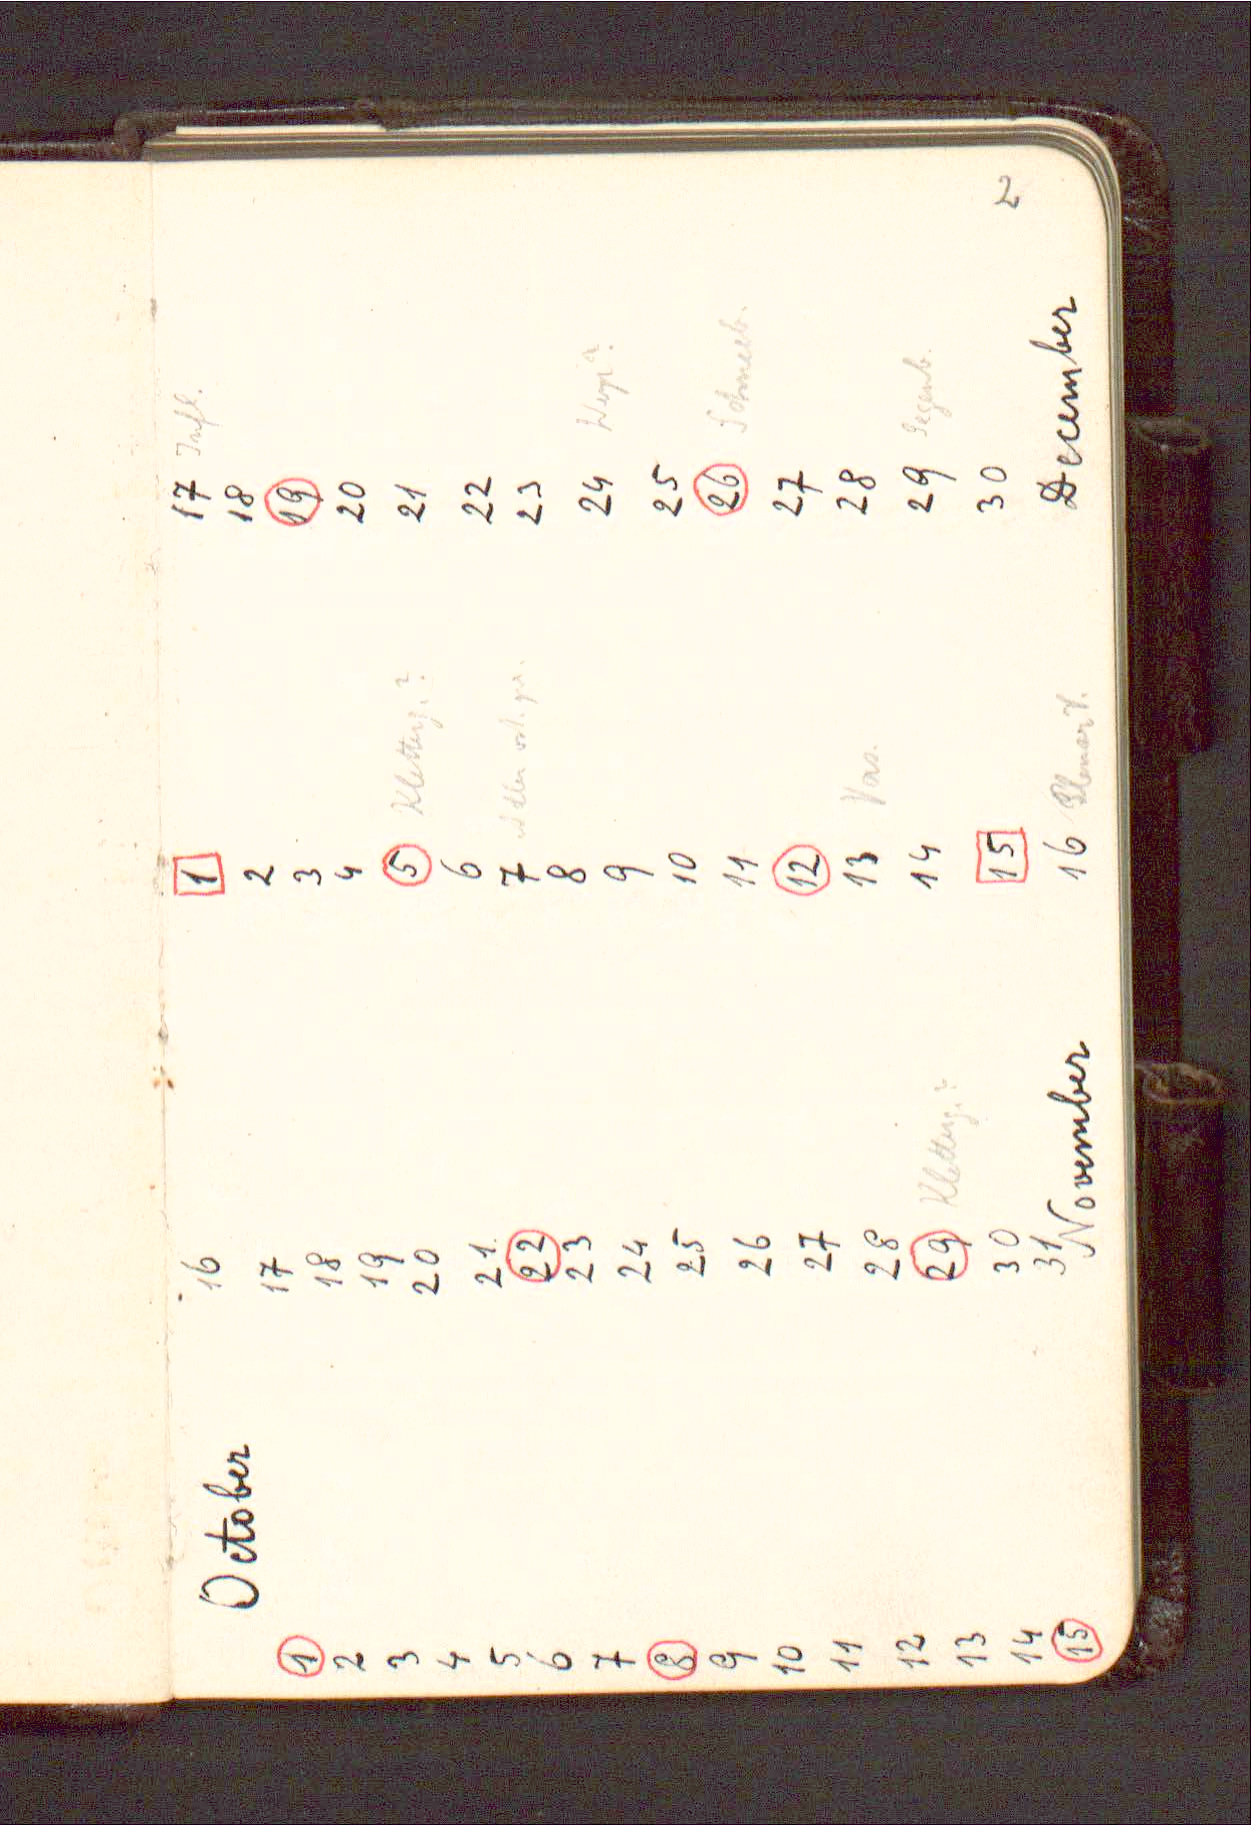 2
October
1
2
3
4
5
6
7
8
9
10
11
12
13
14
15
16
17
18
19
20
21
22
23
24
25
26
27
28
29 Kletterg.?
30
31
November
1
2
3
4
5 Kletterg.?
6
7 Adler
8
9
10
11
12
13 Vors.
14
15
16 Plenarv.
17
18
19
20
21
22
23
24
25
26 Schneeb.
27
28
29 Gegenb.
30
December